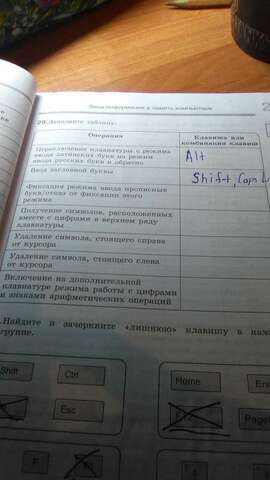 Ввод информации в память компьютера
2
29. Заполните таблицу.
Операция
Клавиша или
комбинация клавиш
Переключение клавиатуры с режима
ввода латинских букв на режим
ввода русских букв и обратно
Alt
Ввод заглавной буквы
Shift, Caps
Фиксация режима ввода прописных
букв/отказ от фиксации этого
режима
Получение символов, расположенных
вместе с цифрами в верхнем ряду
клавиатуры
Удаление символа, стоящего справа
от курсора
Удаление символа, стоящего слева
от курсора
Включение на дополнительной
клавиатуре режима работы с цифрами
и знаками арифметических операций
Найдите и зачеркните «лишнюю» клавишу в каж
группе.
Shift
Ctrl
Home
En
Esc
Page